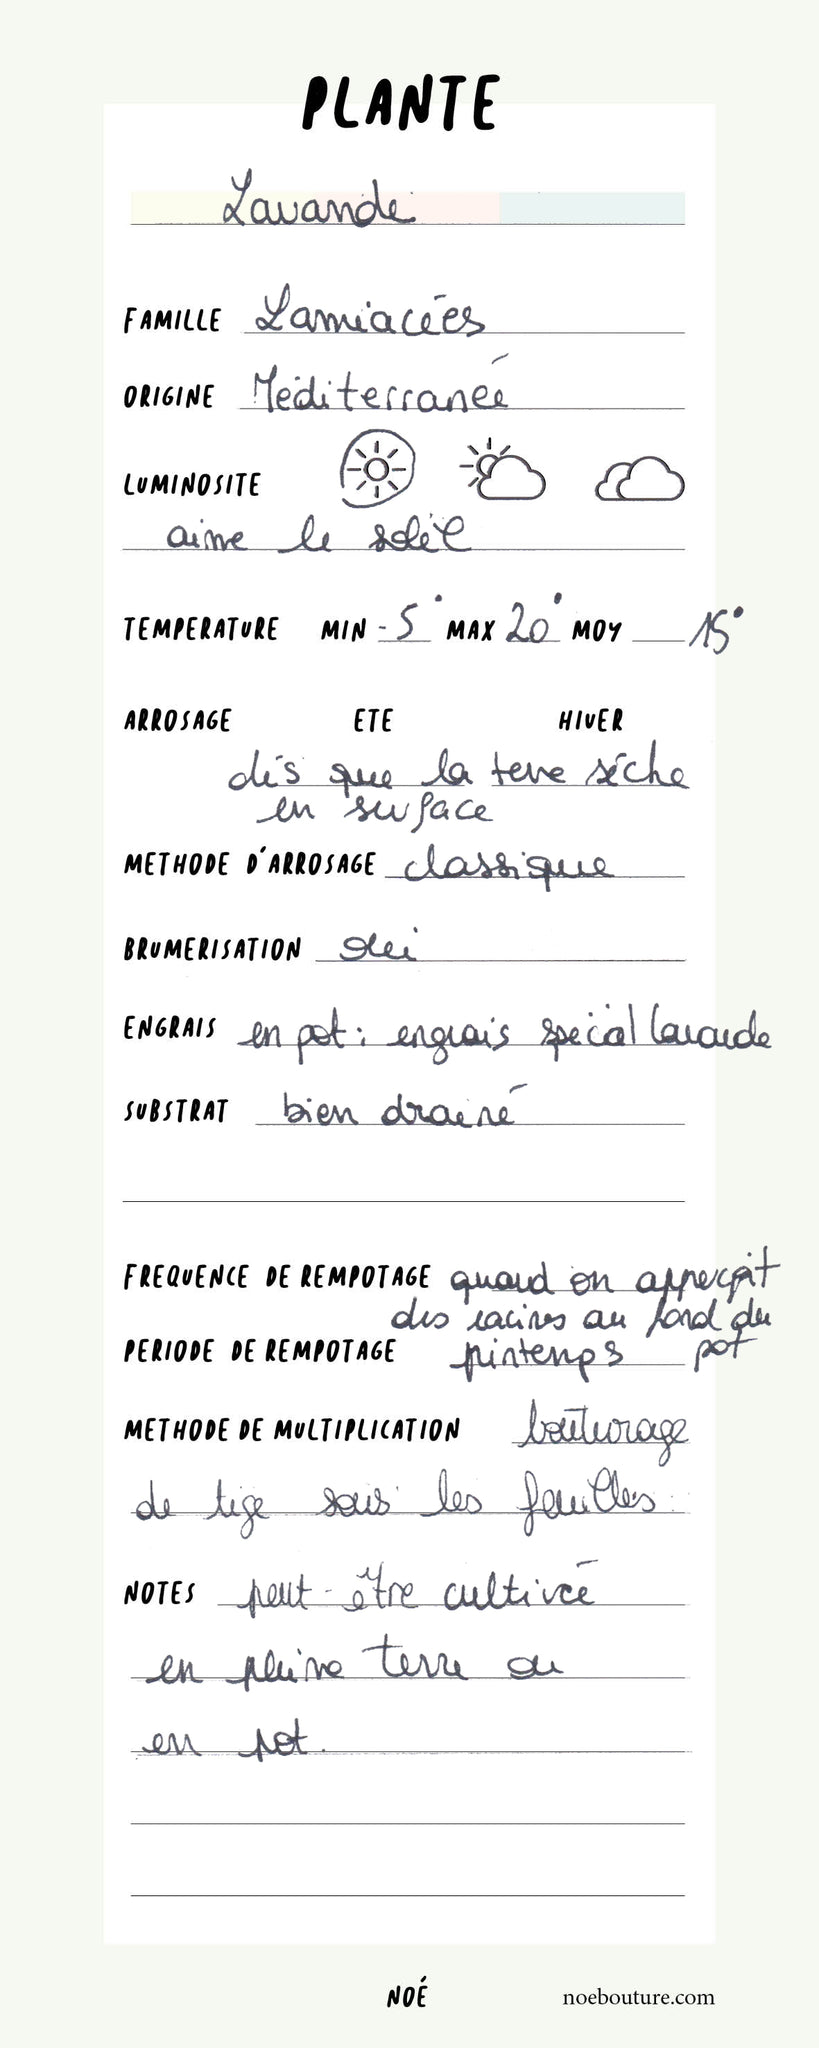 PLANTE
Lavande
FAMILLE Lamiacées
ORIGINE Méditerranée
LUMINOSITE
aime le soleil
TEMPERATURE MIN -5° MAX 20° MOY 15°
ARROSAGE ETE HIVER
dès que la terre sèche
en surface
METHODE D'ARROSAGE classique
BRUMERISATION oui
ENGRAIS en pot : engrais spécial lavande
SUBSTRAT bien drainé
FREQUENCE DE REMPOTAGE quand on apperçoit
des racines au fond du
pot
PERIODE DE REMPOTAGE printemps
METHODE DE MULTIPLICATION bouturage
de tige sous les feuilles
NOTES peut-être cultivée
en pleine terre ou
en pot.
NOÉ
noebouture.com